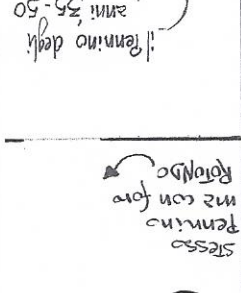 stesso
Pennino
ma con foro
ROTONDO
il Pennino degli
anni '35-50